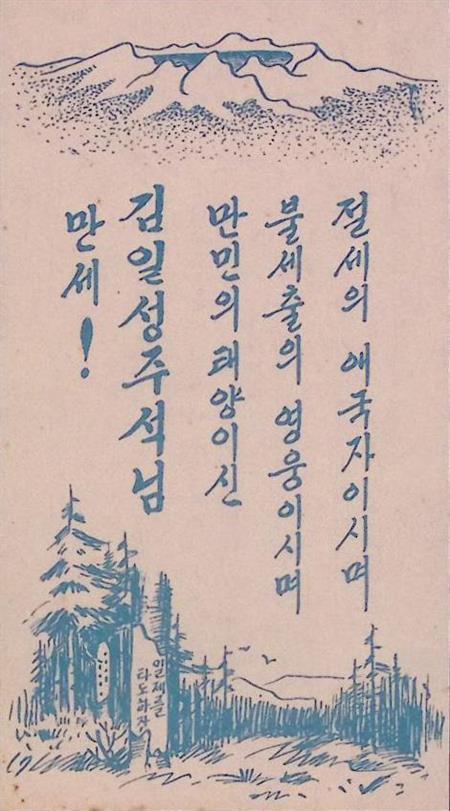 절세의 애국자이시며
불세출의 영웅이시며
만민의 태양이신
김일성주석님
만세!
일제를
타도하자